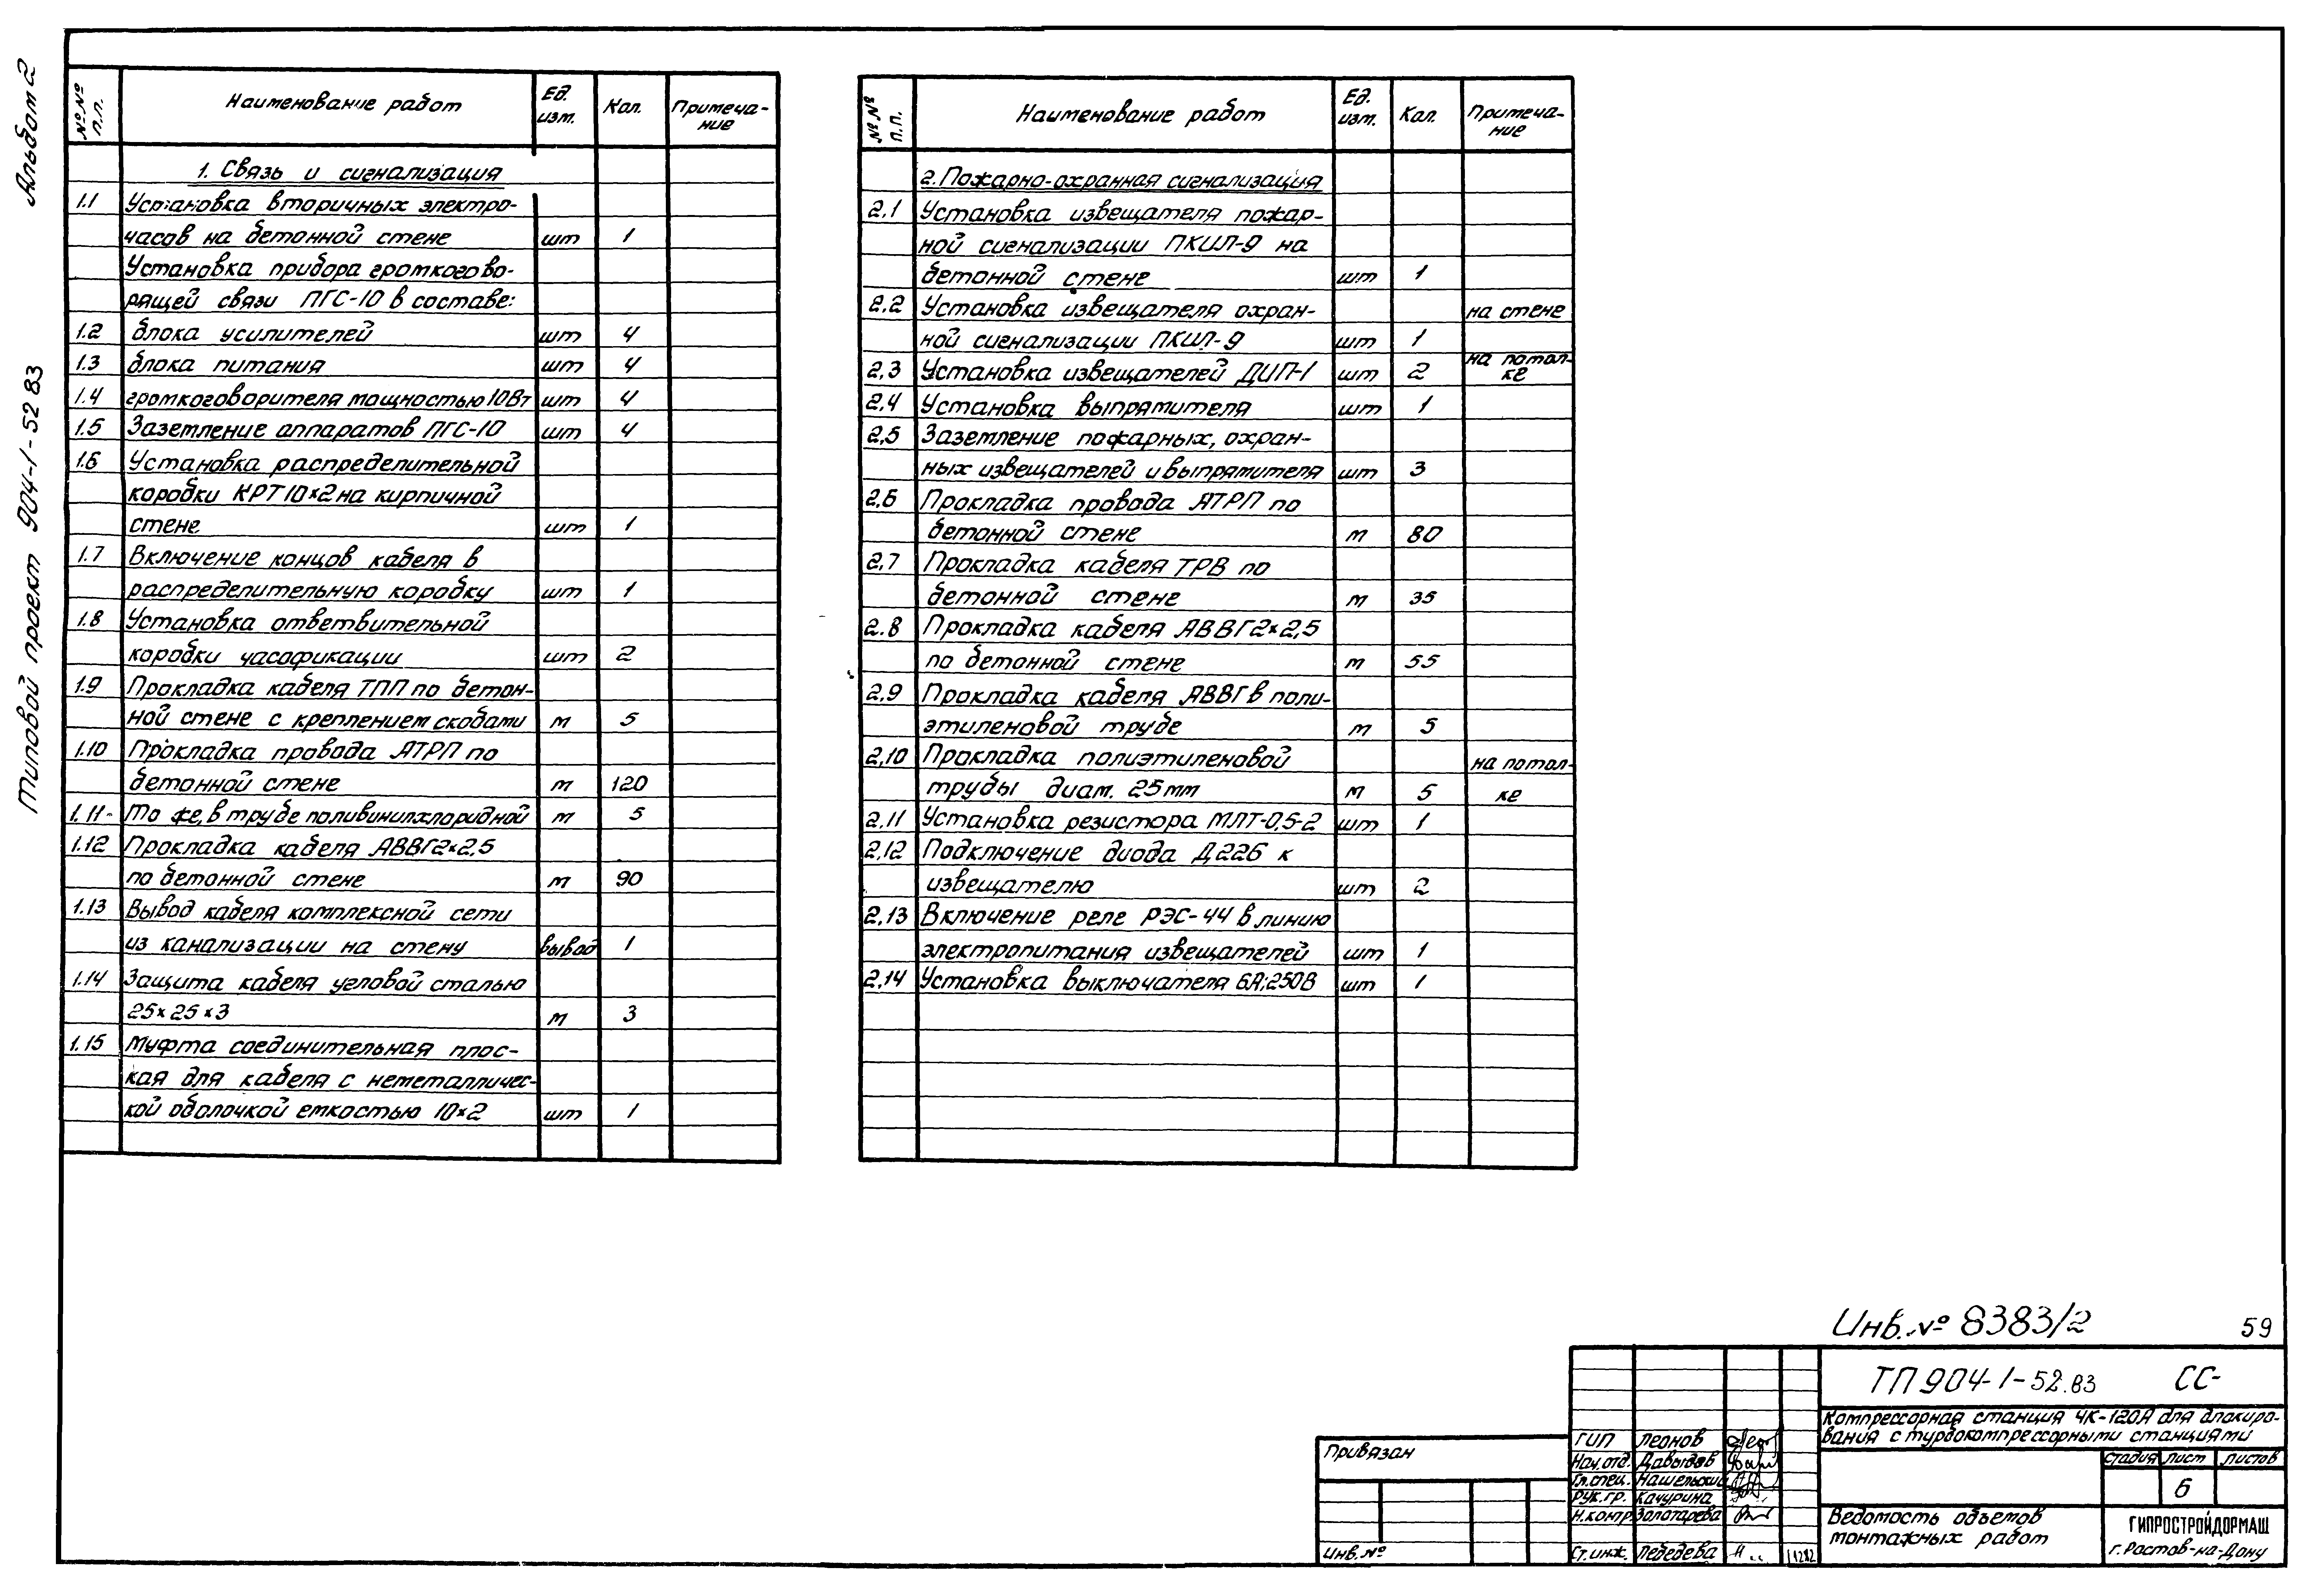 Альбом 2
Типовой проект 904-1-52 83
№№ п.п. Наименование работ Ед. изм. Кол. Примеча-ние
1. Связь и сигнализация
1.1 Установка вторичных электро-
часов на бетонной стене шт 1
Установка прибора громкогово-
рящей связи ПГС-10 в составе:
1.2 блока усилителей шт 4
1.3 блока питания шт 4
1.4 громкоговорителя мощностью 10Вт шт 4
1.5 Заземление аппаратов ПГС-10 шт 4
1.6 Установка распределительной
коробки КРТ 10×2 на кирпичной
стене шт 1
1.7 Включение концов кабеля в
распределительную коробку шт 1
1.8 Установка ответвительной
коробки часофикации шт 2
1.9 Прокладка кабеля ТПП по бетон-
ной стене с креплением скобами м 5
1.10 Прокладка провода АТРП по
бетонной стене м 120
1.11 То же, в трубе поливинилхлоридной м 5
1.12 Прокладка кабеля АВВГ2×2,5
по бетонной стене м 90
1.13 Вывод кабеля комплексной сети
из канализации на стену вывод 1
1.14 Защита кабеля угловой сталью
25×25×3 м 3
1.15 Муфта соединительная плос-
кая для кабеля с неметалличес-
кой оболочкой емкостью 10×2 шт 1
№№ п.п. Наименование работ Ед. изм. Кол. Примеча-ние
2. Пожарно-охранная сигнализация
2.1 Установка извещателя пожар-
ной сигнализации ПКИЛ-9 на
бетонной стене шт 1
2.2 Установка извещателя охран- на стене
ной сигнализации ПКИЛ-9 шт 1
2.3 Установка извещателей ДИП-1 шт 2 на потол-ке
2.4 Установка выпрямителя шт 1
2.5 Заземление пожарных, охран-
ных извещателей и выпрямителя шт 3
2.6 Прокладка провода АТРП по
бетонной стене м 80
2.7 Прокладка кабеля ТРВ по
бетонной стене м 35
2.8 Прокладка кабеля АВВГ2×2,5
по бетонной стене м 55
2.9 Прокладка кабеля АВВГ в поли-
этиленовой трубе м 5
2.10 Прокладка полиэтиленовой на потол-
трубы диам. 25мм м 5 ке
2.11 Установка резистора МЛТ-0,5-2 шт 1
2.12 Подключение диода Д226 к
извещателю шт 2
2.13 Включение реле РЭС-44 в линию
электропитания извещателей шт 1
2.14 Установка выключателя 6А;250В шт 1
Инв. № 8383/2 59
ТП 904-1-52.83 СС-
Компрессорная станция 4К-120А для блокиро-
вания с турбокомпрессорными станциями
Привязан
Инв. №
ГИП Леонов
Нач.отд. Давыдов
Гл.спец. Нашельский
Рук.гр. Качурина
Н.контр Золотарева
Ст.инж. Лебедева
Стадия Лист Листов
6
Ведомость объемов
монтажных работ
ГИПРОСТРОЙДОРМАШ
г. Ростов-на-Дону